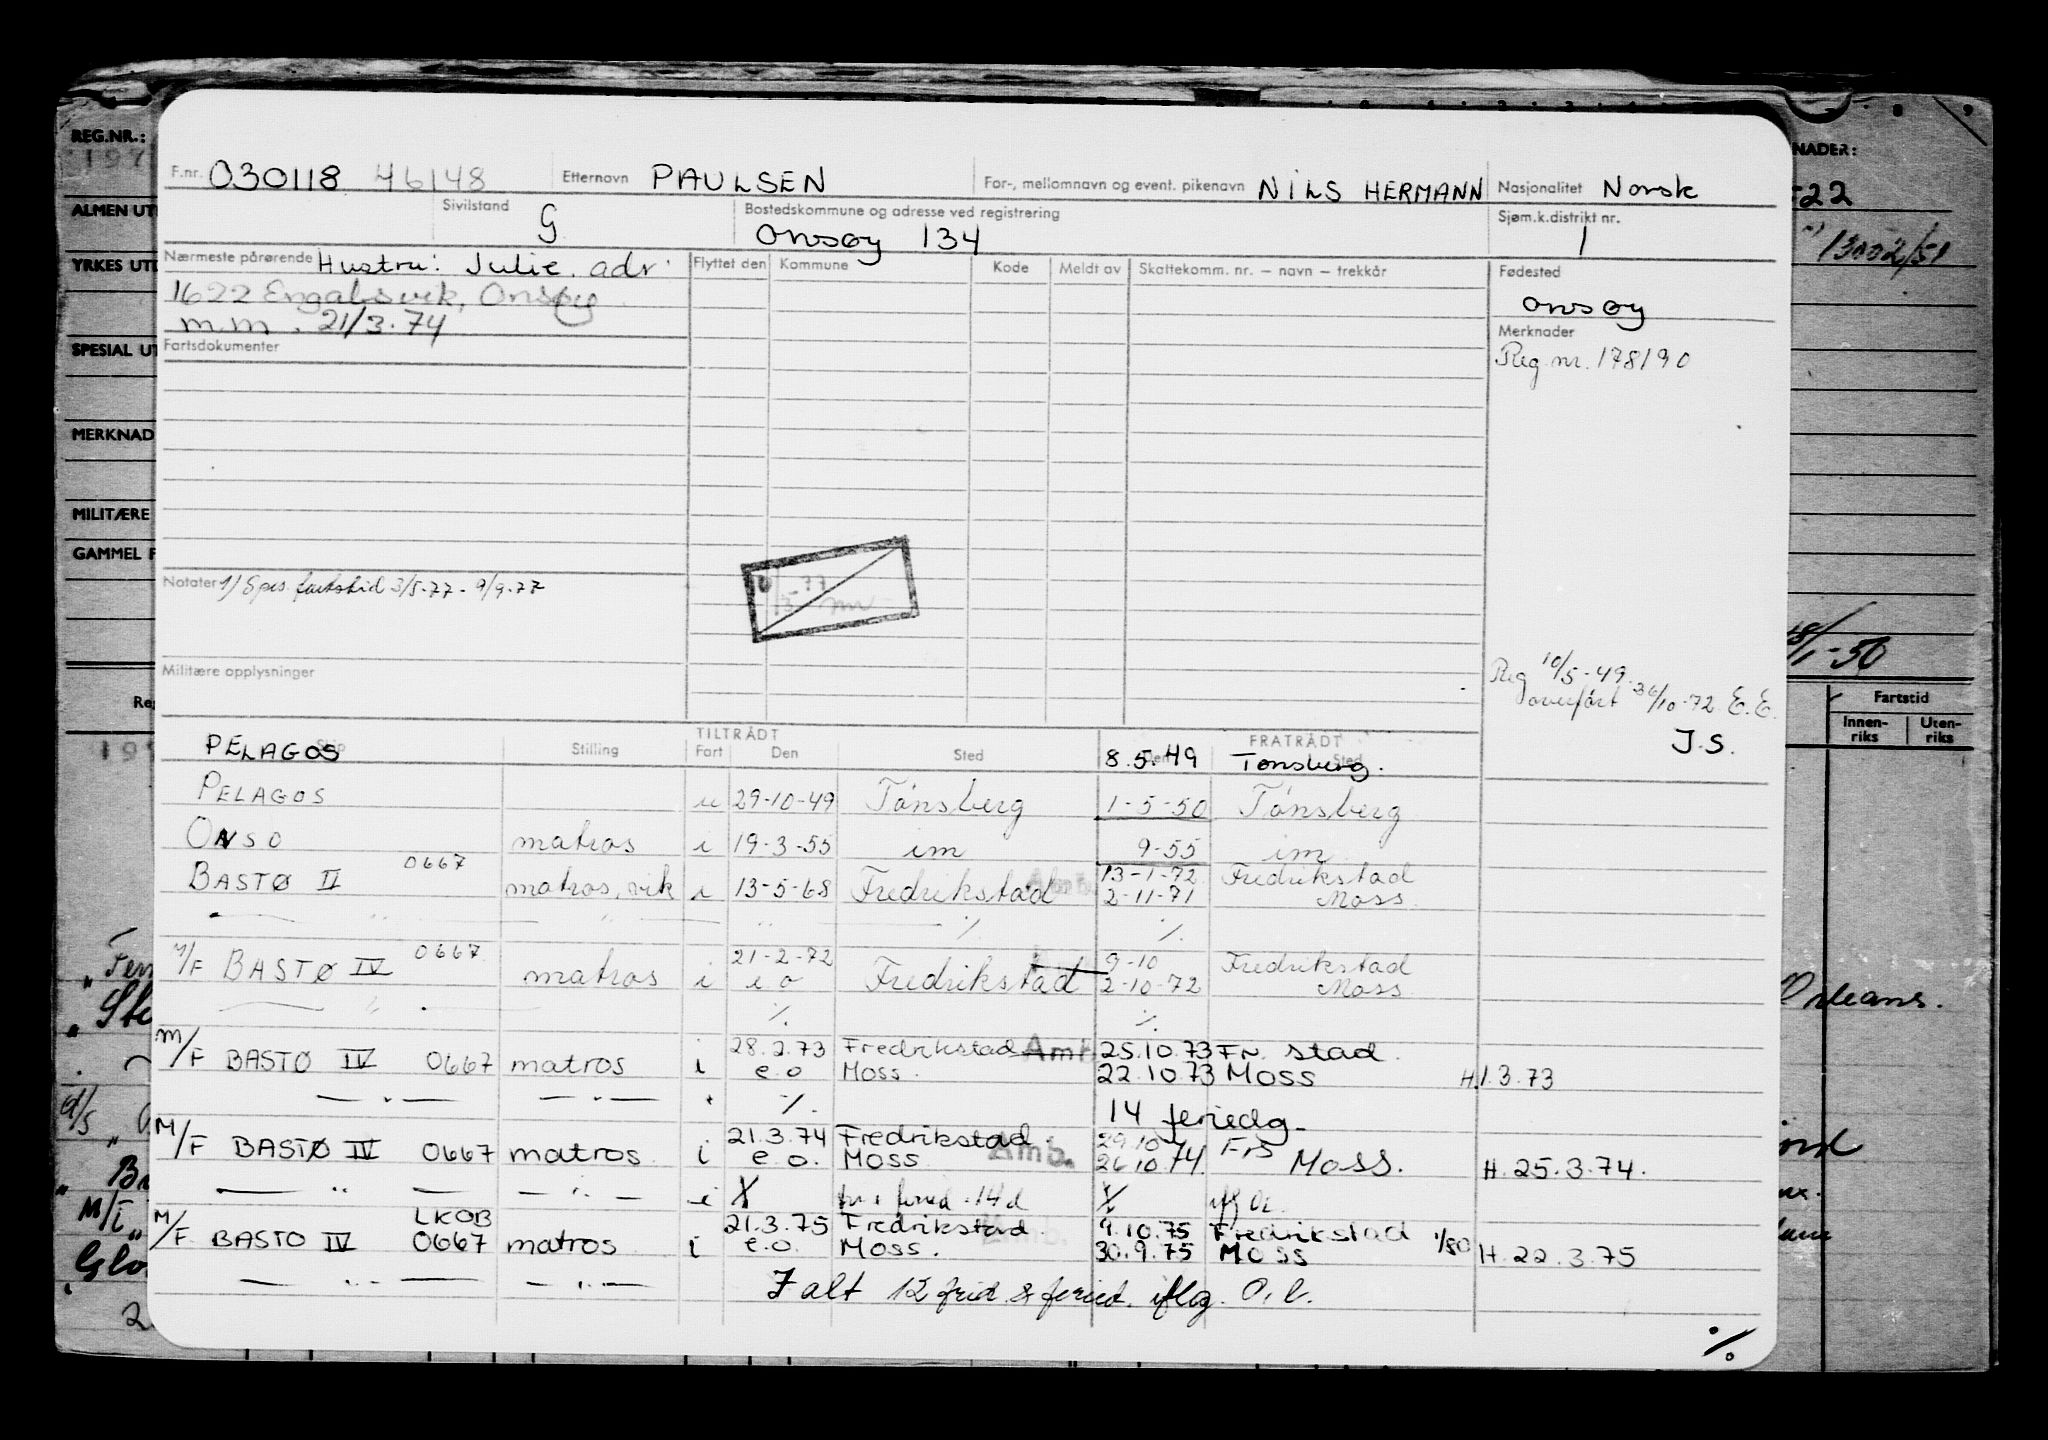 REG.NR.:
F.nr. 030118 46148 Etternavn PAULSEN For-, mellomnavn og event. pikenavn NILS HERMANN Nasjonalitet Norsk
Sivilstand G Bostedskommune og adresse ved registrering Onsøy 134 Sjøm.k.distrikt nr. 1
Nærmeste pårørende Hustru: Julie. adr. Flyttet den Kommune Kode Meldt av Skattekomm. nr. – navn – trekkår Fødested
1622 Engalsvik, Onsøy Onsøy
m.m. 21/3.74 Merknader
Fartsdokumenter Reg nr. 178190
ALMEN UT
YRKES UT
SPESIAL UT
MERKNAD
MILITÆRE
GAMMEL F
NADER:
-22
13002/51
Notater 1) Spes. fartstid 3/5-77 - 9/9-77
-77
Militære opplysninger
Reg 10/5-49
overført 26/10-72 E.E.
J.S.
/1-50
Fartstid
Innen-riks Uten-riks
Skip Stilling TILTRÅDT Fart Den Sted FRATRÅDT Den Sted
PELAGOS 8.5.49 Tønsberg.
PELAGOS u 29-10-49 Tønsberg 1-5-50 Tønsberg
ONSO matros i 19-3-55 im 9-55 im
BASTØ II 0667 matros, vik i 13-5-68 Fredrikstad Amb. 13-1-72 Fredrikstad
2-11-71 Moss
— " — — " — " — ·/. ·/.
M/F BASTØ IV 0667 matros i 21-2-72 Fredrikstad 9-10 Fredrikstad
e o 2-10-72 Moss
— " — ·/. ·/.
M/F BASTØ IV 0667 matros i 28.2.73 Fredrikstad Amb. 25.10.73 Fr. stad
e.o Moss. 22.10.73 Moss H.1.3.73
— " — — " — ·/. 14 feriedg.
M/F BASTØ IV 0667 matros i 21.3.74 Fredrikstad Amb. 29.10
e.o. Moss 26.10.74 Frs Moss. H.25.3.74.
— " — — " — i feried. 14 d
M/F BASTO IV LKOB 0667 matros i 21.3.75 Fredrikstad Amb. 9.10.75 Fredrikstad 1/80
e.o. Moss. 30.9.75 Moss H.22.3.75
— " — — " — I alt 12 frid. & feried. iflg. O.l.
·/.
Orleans.